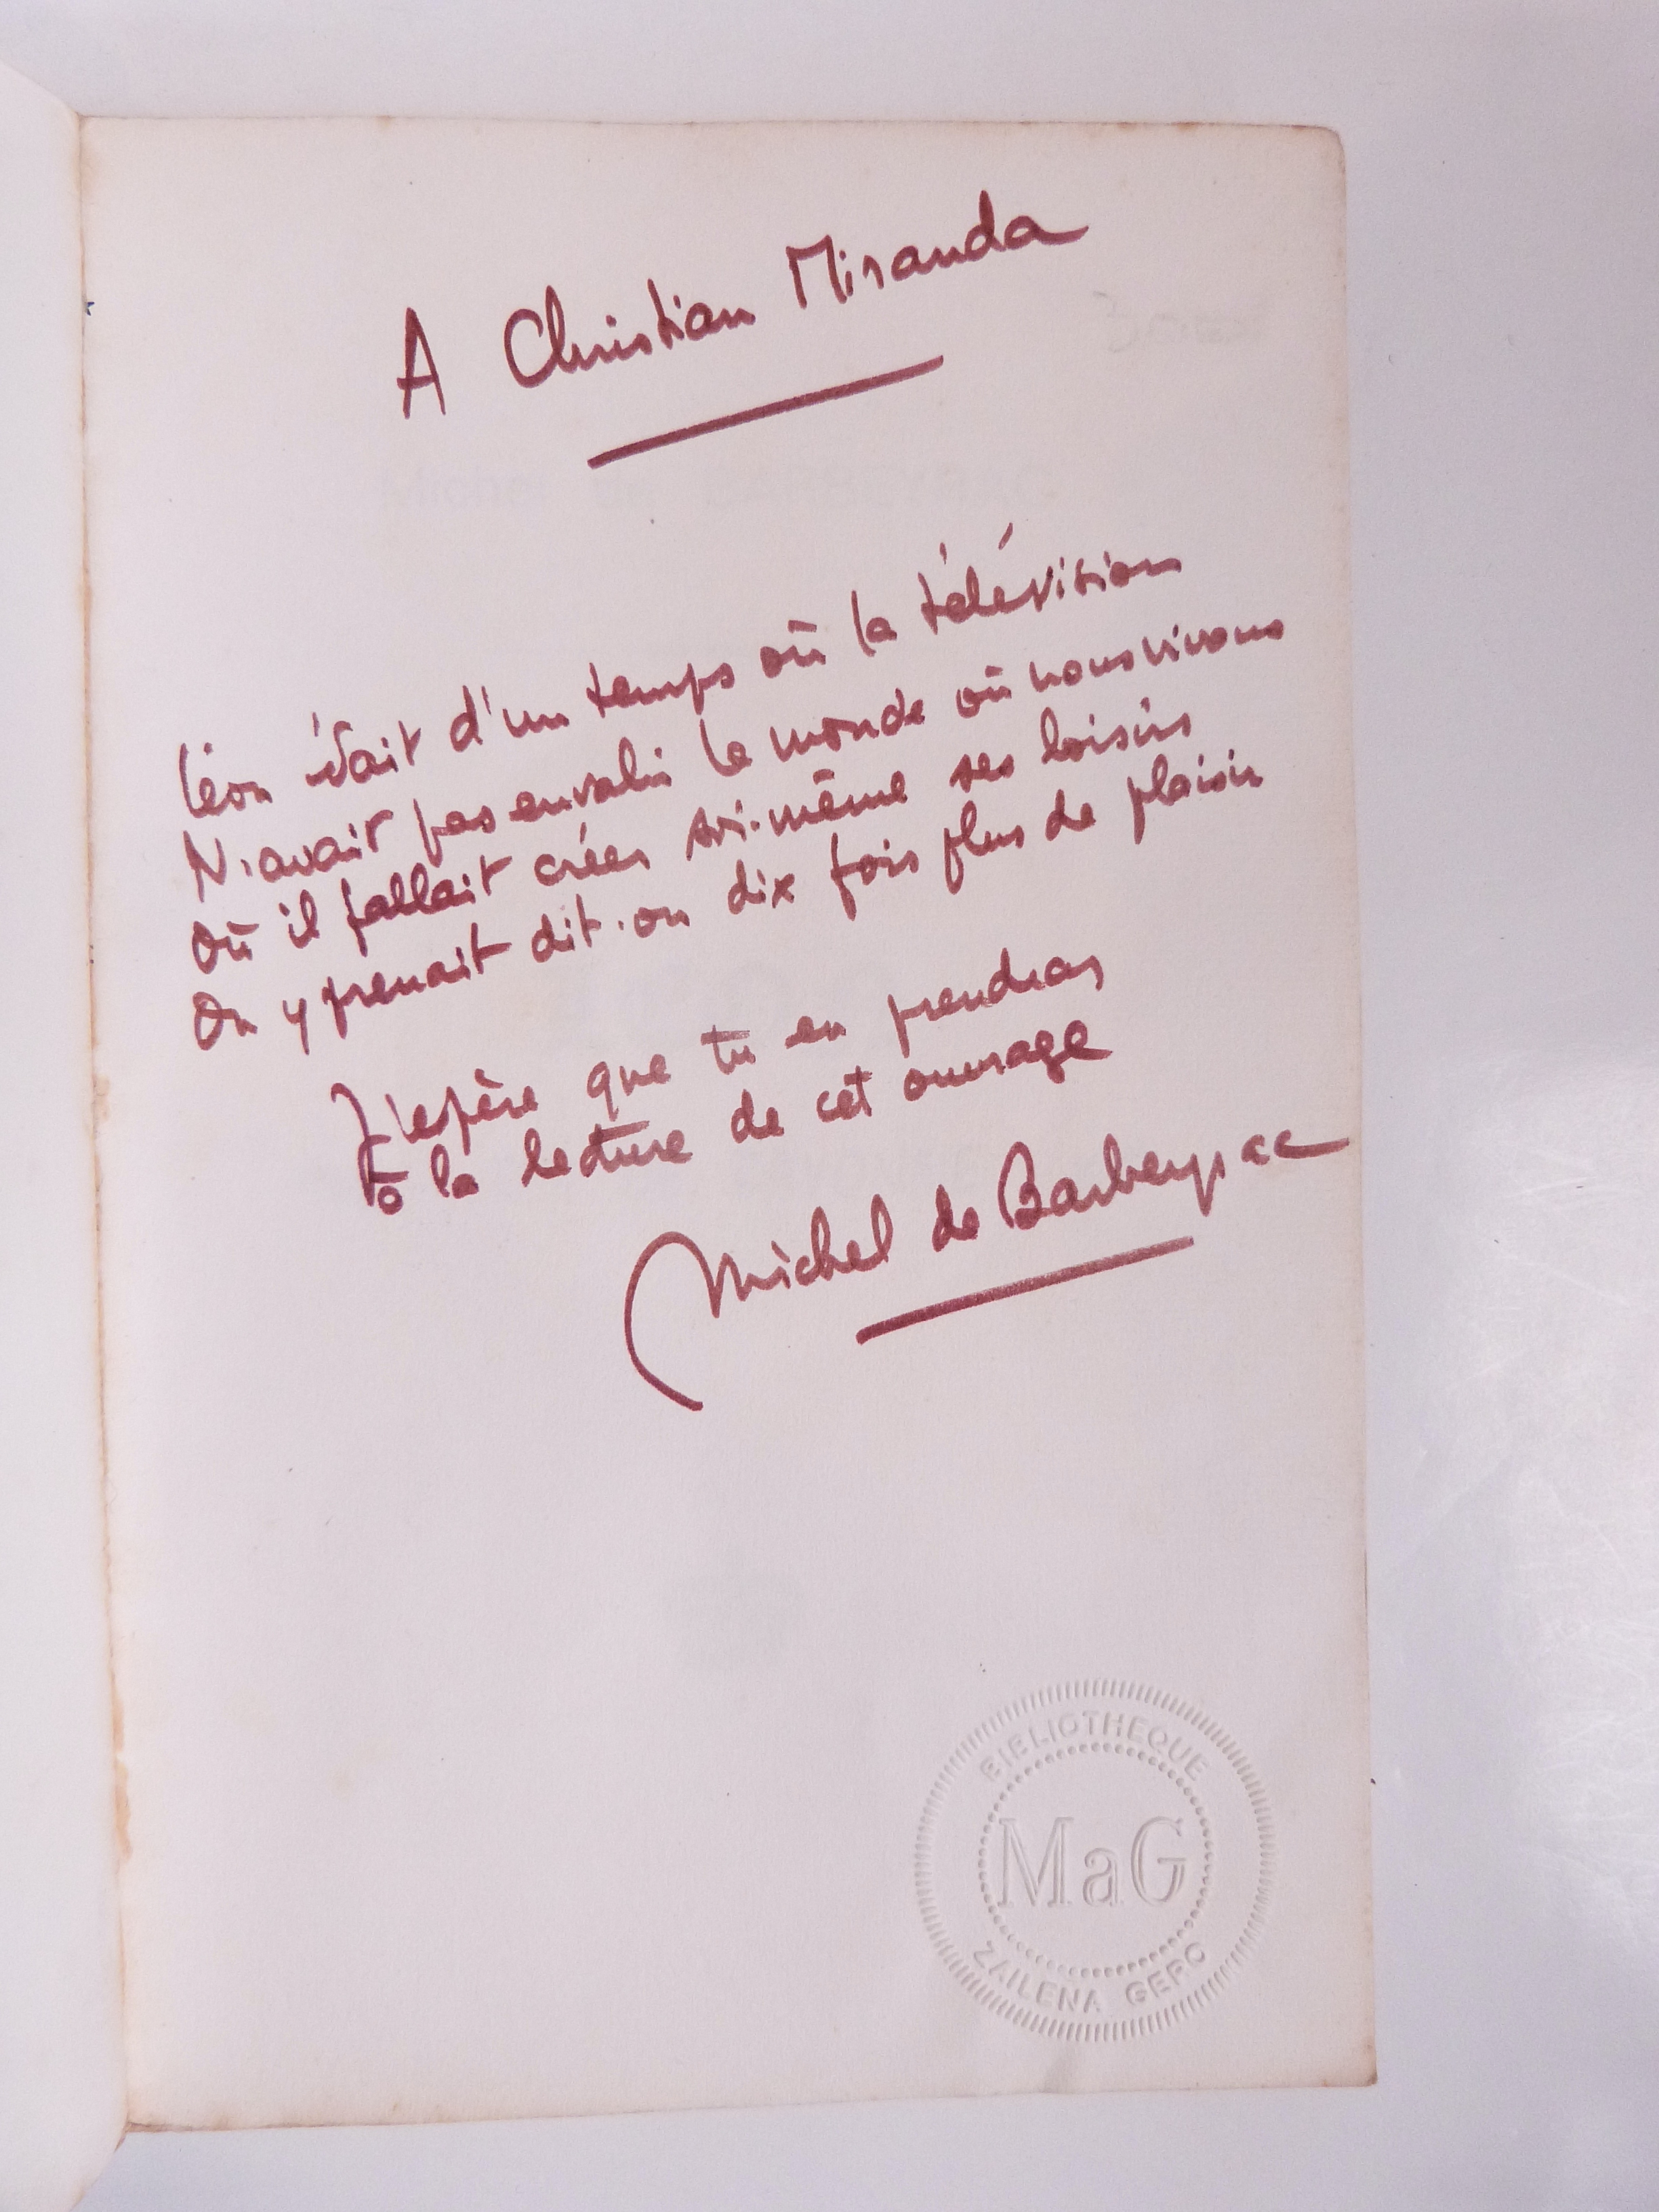 A Christian Miranda
Léon était d'un temps où la télévision
N'avait pas envahi le monde où nous vivons
Où il fallait créer soi-même ses loisirs
On y prenait dit-on dix fois plus de plaisir
J'espère que tu en prendras
à la lecture de cet ouvrage
Michel de Barbeyrac
BIBLIOTHEQUE
MaG
ZAILENA GEPO